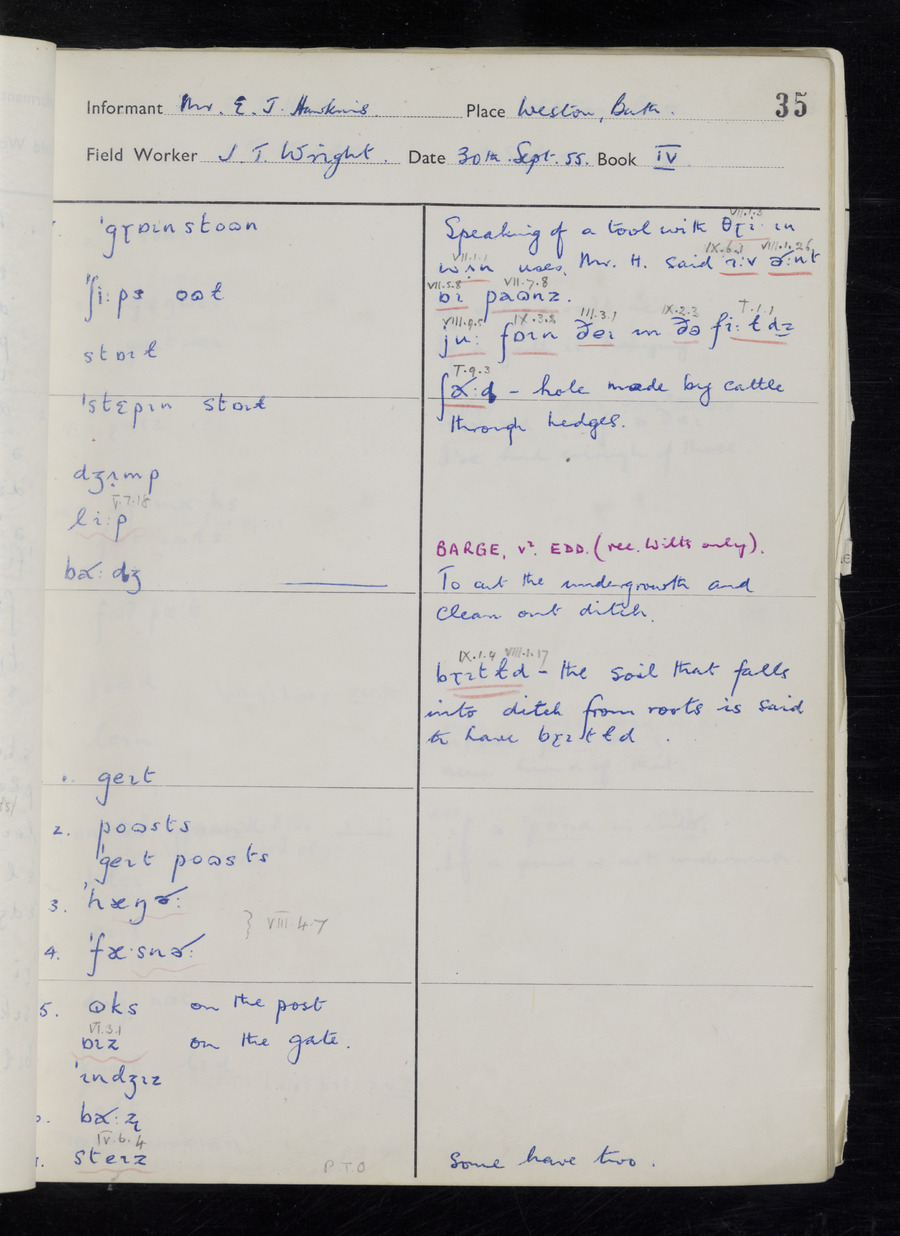 35
Informant Mr. E. J. Hawkins Place Weston, Bath.
Field Worker J. T. Wright. Date 30th. Sept. 55. Book IV
ˈgɽɒɪnstoən
ˈʃi:ps oət
stɒɪɫ
ˈstɛpɪn stɒɪɫ
V.7.18
li:p
dʒ
geɪt
2. poəsts
ˈgeɪt poəsts
3. ˈhæŋɚ:
} VIII.4.7
4. ˈfæ·snɚ:
5. ʊks on the post
VI.3.1
ɒɪz on the gate.
ˈɪndʒɪz
IV.6.4
steɪz
P.T.O
VII.1.3
Speaking of a tool with θɽi: in
VII.1.1 IX.6.3 VIII.1.26
uses, Mr. H. said
VII.5.8 VII.7.8
VIII.9.5 IX.3.2 III.3.1 IX.2.3 T.1.1
ju: fɒɪn ðeɪ ɪn ðə fi:ɫdz
T.9.3
– hole made by cattle
through hedges.
BARGE, v². EDD. (rec. Wilts only).
To cut the undergrowth and
clean out ditch.
IX.1.4 VIII.1.17
bɽɪtɫd – the soil that falls
into ditch from roots is said
to have bɽɪtɫd.
Some have two.